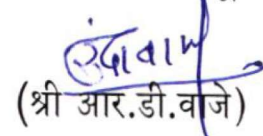 (श्री आर.डी.वाजे)